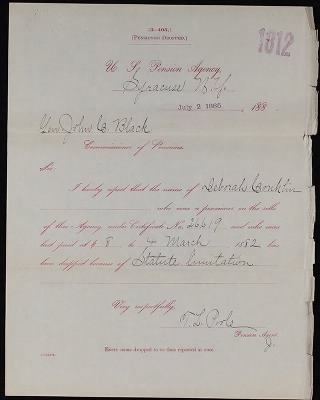 (3-405.)
[PENSIONER DROPPED.]
1812
U. S. Pension Agency,
Syracuse N.Y.
July 2 1885, 188
Gen John C. Black
Commissioner of Pensions.
Sir:
I hereby report that the name of Deborah Conklin
who was a pensioner on the rolls
of this Agency under Certificate No. 26619 and who was
last paid at $ 8 to 4 March 1882 has
been dropped because of Statute limitation
Very respectfully,
T. L. Poole
Pension Agent.
Every name dropped to be thus reported at once.